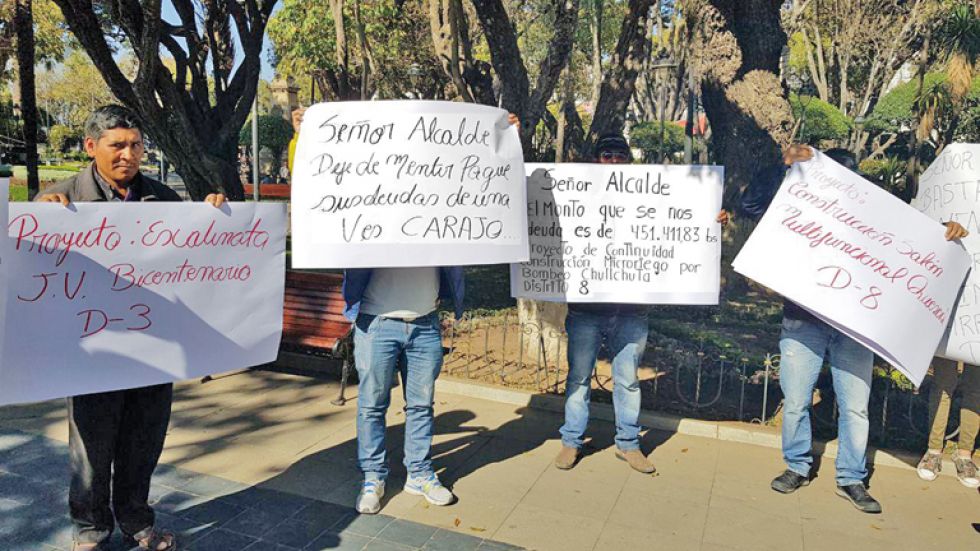 Proyecto: Escalinata
J.V. Bicentenario
D-3
Señor Alcalde
Deje de Mentir Pague
sus deudas de una
Ves CARAJO...
Señor Alcalde
El Monto que se nos
deuda es de 451.411,83 bs
Proyecto de Continuidad
Construcción Microriego por
Bombeo Chullchuta
Distrito 8
Proyecto:
Construcción Salón
Multifuncional
D-8
Señor
BASTA